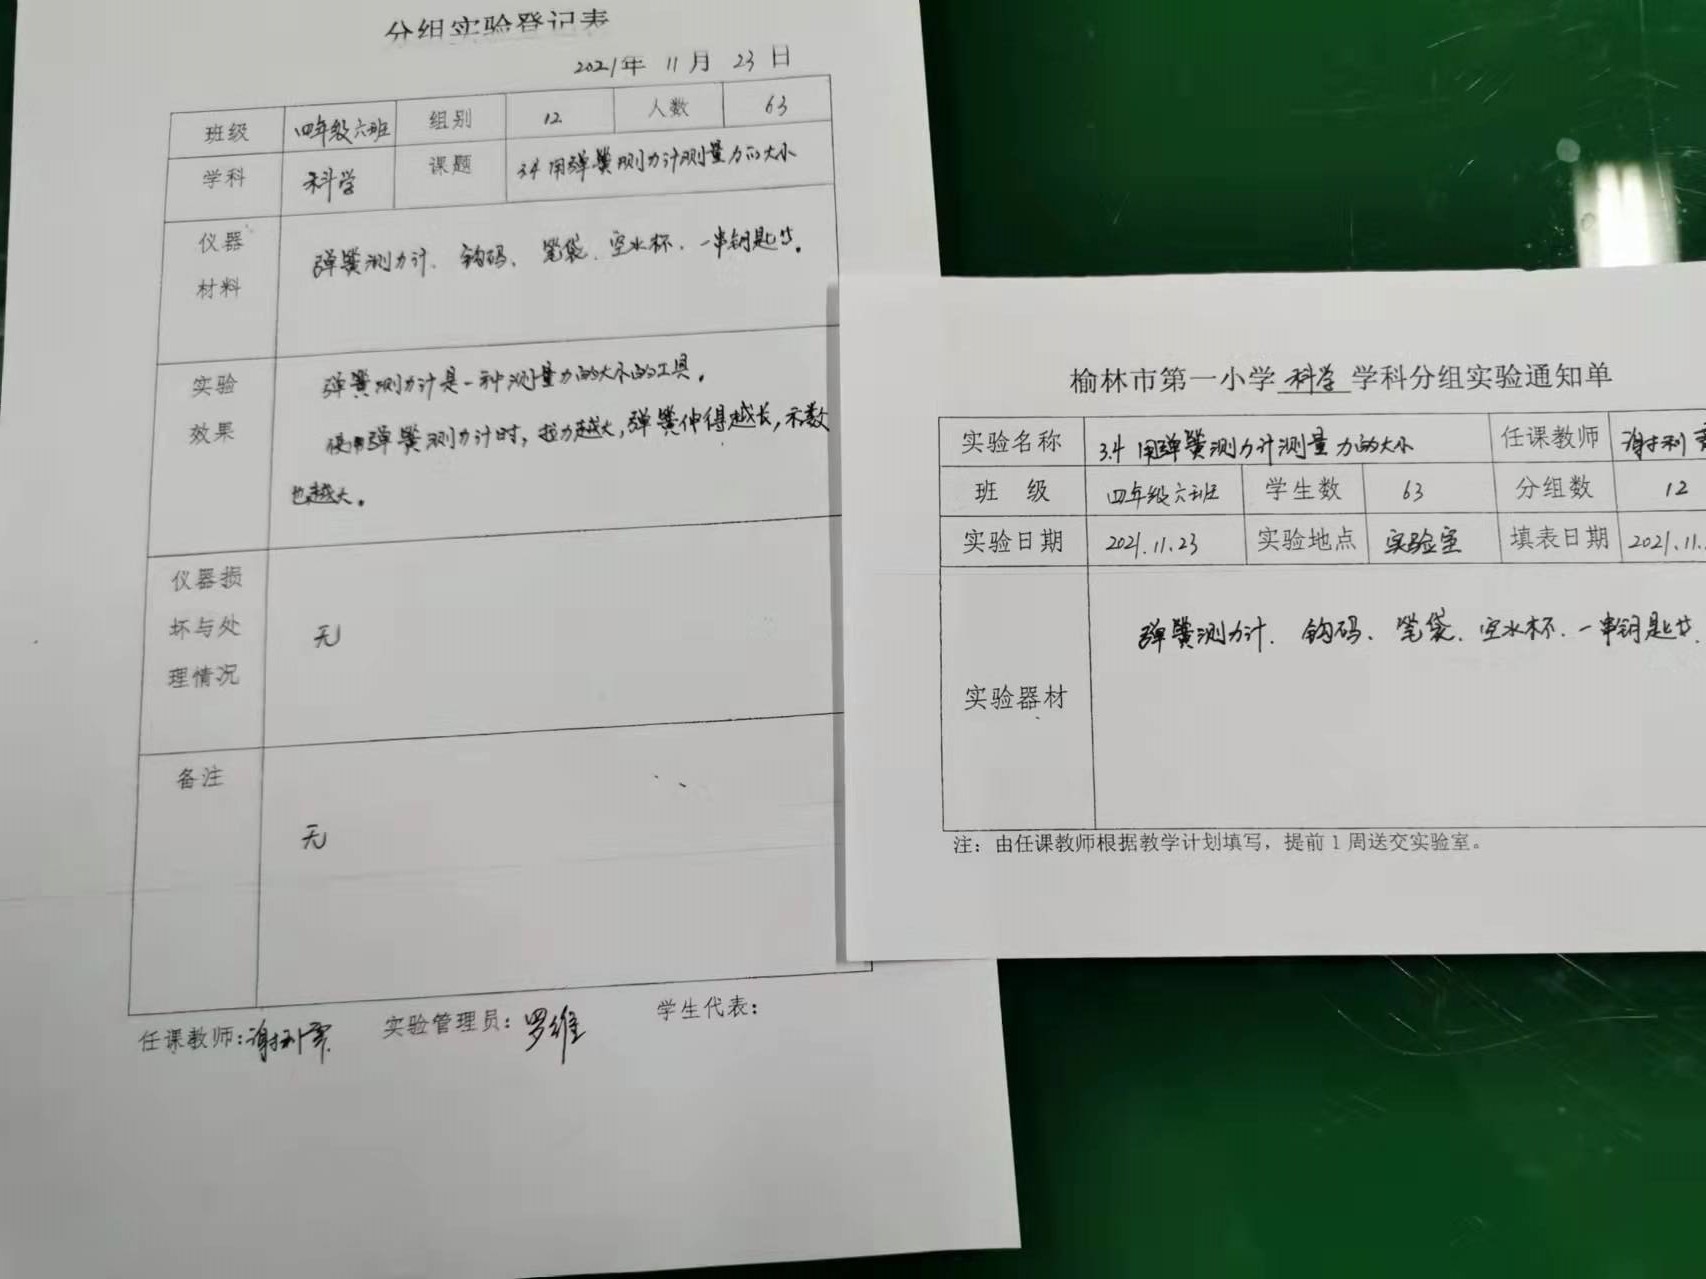 分组实验登记表
2021年 11月 23日
班级 四年级六班 组别 12 人数 63
学科 科学 课题 3.4 用弹簧测力计测量力的大小
仪器材料 弹簧测力计、钩码、笔袋、空水杯、一串钥匙等。
实验效果 弹簧测力计是一种测量力的大小的工具。
使用弹簧测力计时，拉力越大，弹簧伸得越长，示数
也越大。
仪器损坏与处理情况 无
备注 无
任课教师： 实验管理员：罗维 学生代表：
榆林市第一小学 科学 学科分组实验通知单
实验名称 3.4 用弹簧测力计测量力的大小 任课教师
班 级 四年级六班 学生数 63 分组数 12
实验日期 2021.11.23 实验地点 实验室 填表日期 2021.11.
实验器材 弹簧测力计、钩码、笔袋、空水杯、一串钥匙等.
注：由任课教师根据教学计划填写，提前1周送交实验室。